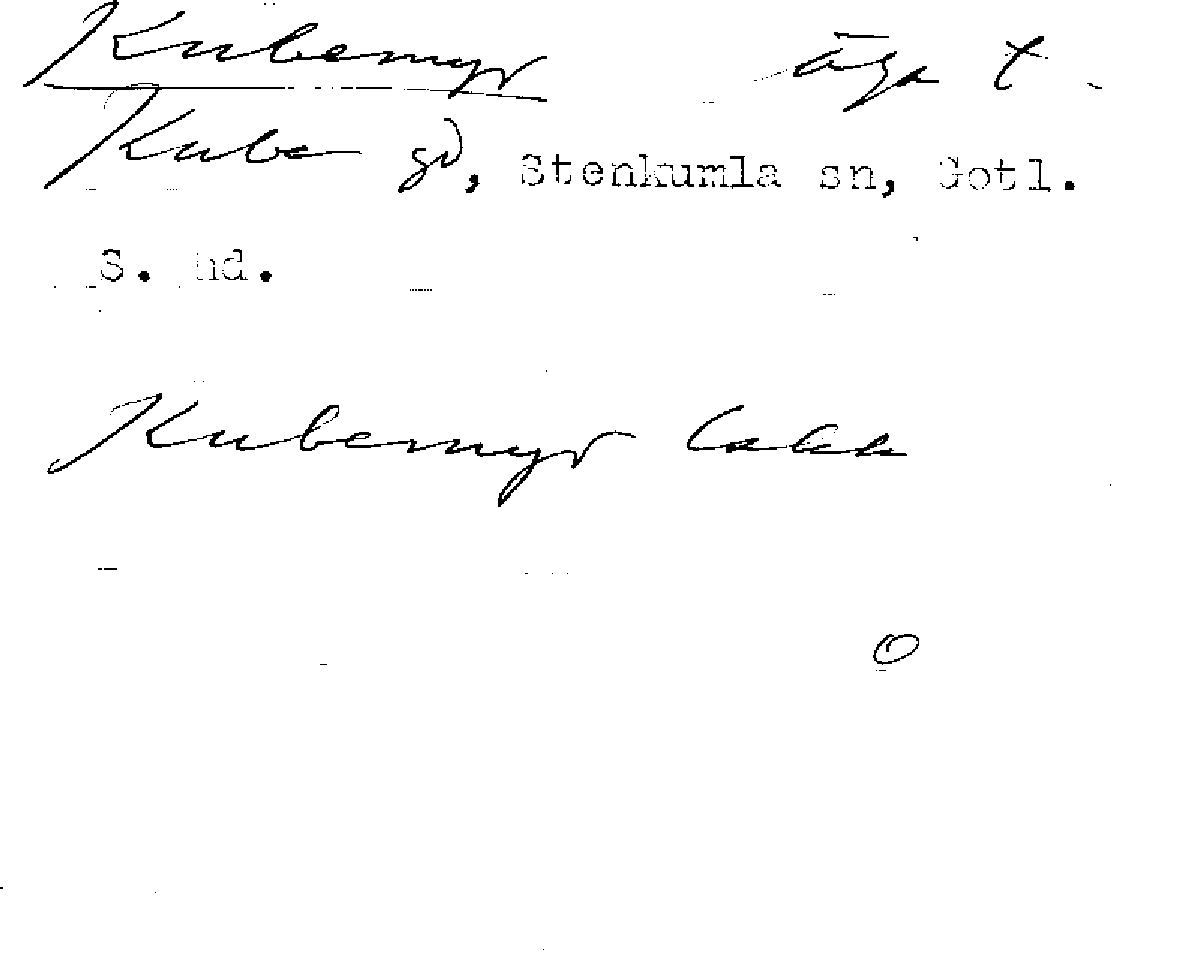 Kubemyr äga t
Kube gd, Stenkumla sn, Gotl.
S. hd.
Kubemyr
O